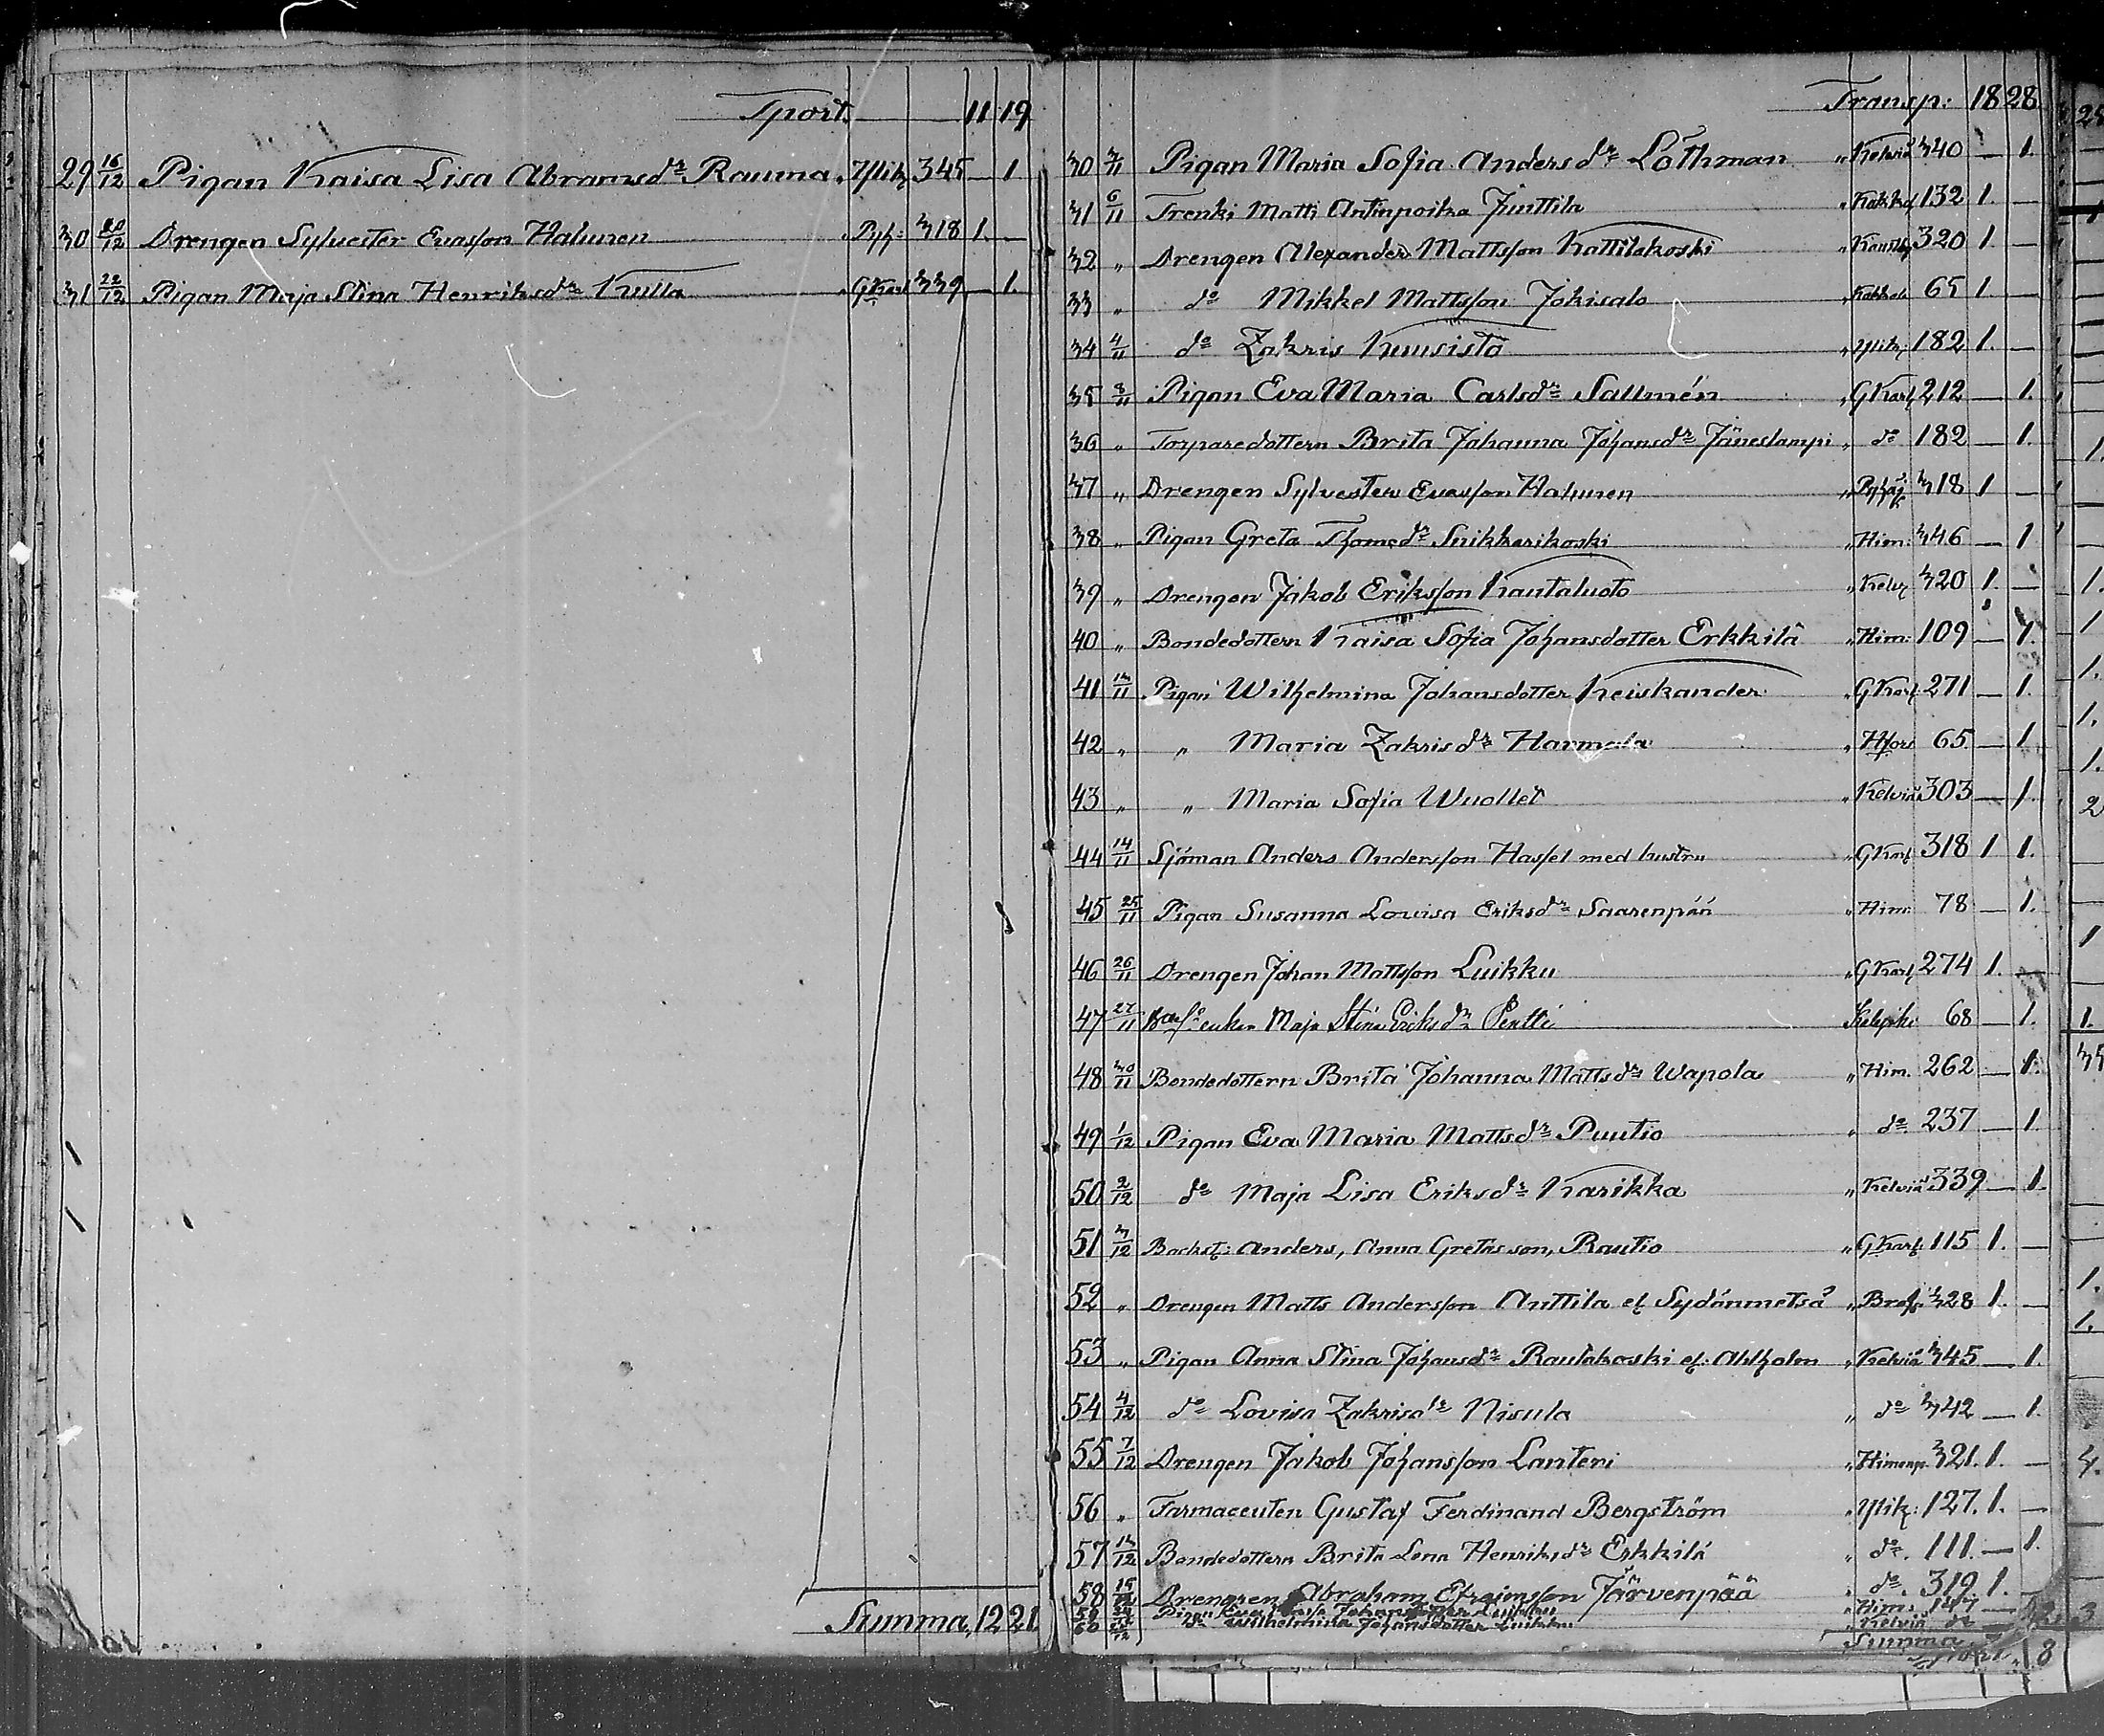 Tport. 11 19
29 16/12 Pigan Kaisa Lisa Abramsdr Rauma " Ylik 345 — 1
30 20/12 Drengen Sylvester Evasson Halunen Pyh: 318 1. —
31 22/12 Pigan Maja Stina Henriksdr Kulla " GKarl 339 — 1.
Summa, 12 21
Transp: 18 28.
30 3/11 Pigan Maria Sofia Andersdr Löthman " Kelviå 340 — 1.
31 6/11 Trenki Matti Antinpoika Junttila 132 1. —
32 " Drengen Alexander Mattsson Kattilakoski " 320 1. —
33 " do Mikkel Mattsson Jokisalo 65 1. —
34 4/11 do Zakris Kuusisto " Ylik: 182 1. —
35 8/11 Pigan Eva Maria Carlsdr Sallmén " GKarl 212 — 1.
36 " Torparedottern Brita Johanna Johansdr Jäneslampi " do 182 — 1.
37 " Drengen Sylvester Evasson Halunen " Pyhäj 318 1 —
38 " Pigan Greta Thomsdr Snikkarikoski " Him: 346 — 1
39 " Drengen Jakob Eriksson Kautaluoto " Kelv 320 1. —
40 " Bondedottern Kaisa Sofia Johansdotter Erkkilä " Him: 109 — 1.
41 13/11 Pigan Wilhelmina Johansdotter Keiskander " GKarl 271 — 1.
42 " " Maria Zakrisdr Harmala " Hfors 65 — 1.
43 " " Maria Sofia Wuollet " Kelviå 303 — 1.
44 14/11 Sjöman Anders Andersson Hassel med hustru " GKarl 318 1 1.
45 25/11 Pigan Susanna Lovisa Eriksdr Saarenpää " Him: 78 — 1.
46 26/11 Drengen Johan Mattsson Luikku " GKarl 274 1. —
47 27/11 enkan Maja Stina Eriksdr Pentti 68 — 1.
48 30/11 Bondedottern Brita Johanna Mattsdr Wapola " Him. 262 — 1.
49 1/12 Pigan Eva Maria Mattsdr Puutio " do 237 — 1
50 2/12 do Maja Lisa Eriksdr Karikka " Kelviå 339 — 1.
51 3/12 Backst: Anders, Anna Gretas son, Rautio " GKarl 115 1. —
52 " Drengen Matts Andersson Anttila el Sydänmetsä " Brah: 328 1. —
53 " Pigan Anna Stina Johansdr Rautakoski el: Ahlholm " Kelviå 345 — 1.
54 4/12 do Lovisa Zakrisdr Nisula " do 342 — 1.
55 7/12 Drengen Jakob Johansson Lanteri " Himanp. 321. 1. —
56 " Farmaceuten Gustaf Ferdinand Bergström " Ylik: 127. 1. —
57 13/12 Bondedottern Brita Lena Henriksdr Erkkilä " do. 111. — 1.
58 15/12 Drengren Abraham Efraimsson Järvenpää " do. 319. 1. —
59 Pigan Johansdotter " Him:
60 do Wilhelmina Johansdotter Luikku " Kelviå do
Summa